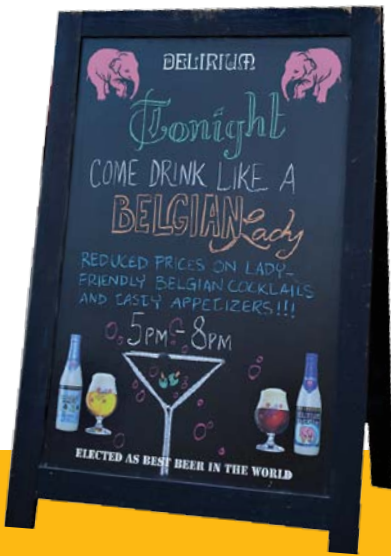 DELIRIUM
Tonight
COME DRINK LIKE A
BELGIAN Lady
REDUCED PRICES ON LADY-
FRIENDLY BELGIAN COCKLAILS
AND TASTY APPETIZERS!!!
5PM - 8PM
ELECTED AS BEST BEER IN THE WORLD